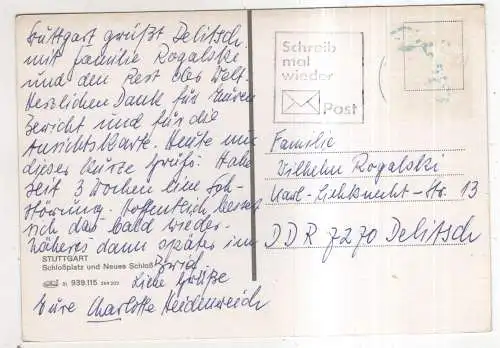 Stuttgart grüßt Delitsch
mit Familie Rogalski
und den Rest der Welt.
Herzlichen Dank für Euren
Bericht und für die
Ansichtskarte. Heute nur
dieser kurze Gruß. Habe
seit 3 Wochen eine
störung. Hoffentlich bessert
sich das bald wieder.
Näheres dann später im
STUTTGART
Schloßplatz und Neues Schloß
31 939.115
Liebe Grüße
Eure Charlotte Heidenreich
Schreib
mal
wieder
Post
Familie
Wilhelm Rogalski
Karl-Liebknecht-Str. 13
DDR 7270 Delitsch